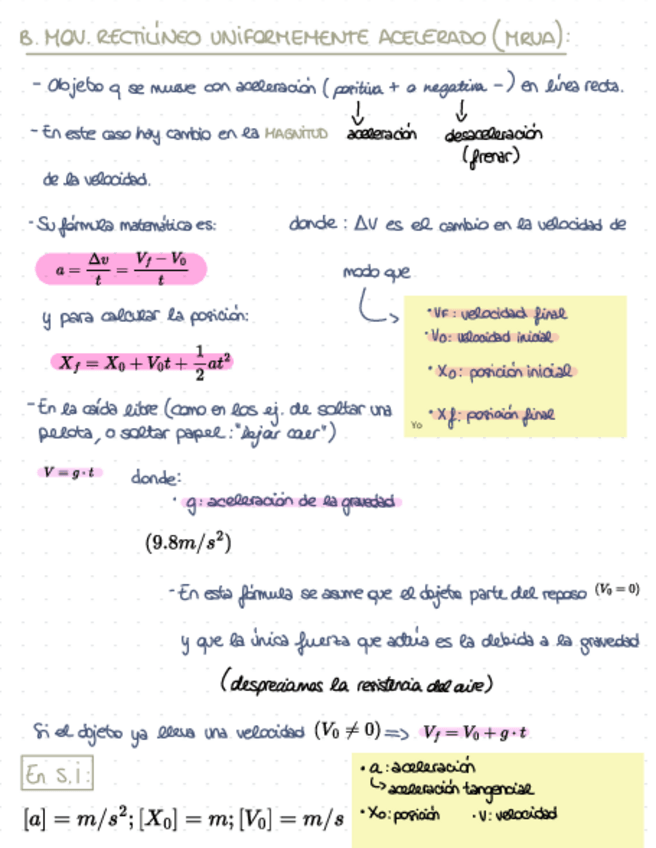 B. MOV. RECTILÍNEO UNIFORMEMENTE ACELERADO (MRUA):
- Objeto q se mueve con aceleración (positiva + o negativa -) en línea recta.
- En este caso hay cambio en la MAGNITUD aceleración desaceleración
(frenar)
de la velocidad.
- Su fórmula matemática es: donde: ΔV es el cambio en la velocidad de
a = Δv/t = (V_f - V_0)/t
modo que
y para calcular la posición:
• VF: velocidad final
• Vo: velocidad inicial
X_f = X_0 + V_0t + 1/2 at²
• Xo: posición inicial
• Xf: posición final
Yo
- En la caída libre (como en los ej. de soltar una
pelota, o soltar papel: "dejar caer")
V = g · t donde:
• g: aceleración de la gravedad
(9.8m/s²)
- En esta fórmula se asume que el objeto parte del reposo (V_0 = 0)
y que la única fuerza que actúa es la debida a la gravedad
(despreciamos la resistencia del aire)
Si el objeto ya lleva una velocidad (V_0 ≠ 0) => V_f = V_0 + g · t
En S.I:
• a: aceleración
↳ aceleración tangencial
[a] = m/s²; [X_0] = m; [V_0] = m/s
• Xo: posición • V: velocidad